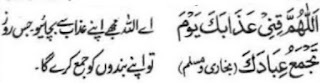 اَللّٰهُمَّ قِنِيْ عَذَابَكَ يَوْمَ اے اللہ مجھے اپنے عذاب سے بچائیو جس روز
تَجْمَعُ عِبَادَكَ (بخاری ومسلم) تو اپنے بندوں کو جمع کرے گا۔